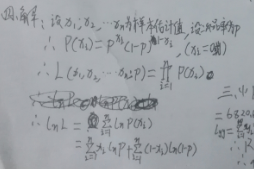 解: 设 x₁, x₂, … xₙ 为样本估计值, 设 为p
∴ P(xᵢ) = p^xᵢ (1-p)^1-xᵢ, (xᵢ=
∴ L(x₁, x₂, … xₙ; p) = ∏ᵢ₌₁ⁿ P(xᵢ)
∴ ln L = ∑ᵢ₌₁ⁿ ln P(xᵢ)
= ∑ᵢ₌₁ⁿ xᵢ ln P + ∑ᵢ₌₁ⁿ (1-xᵢ) ln(1-p)
三、小
= 6820.